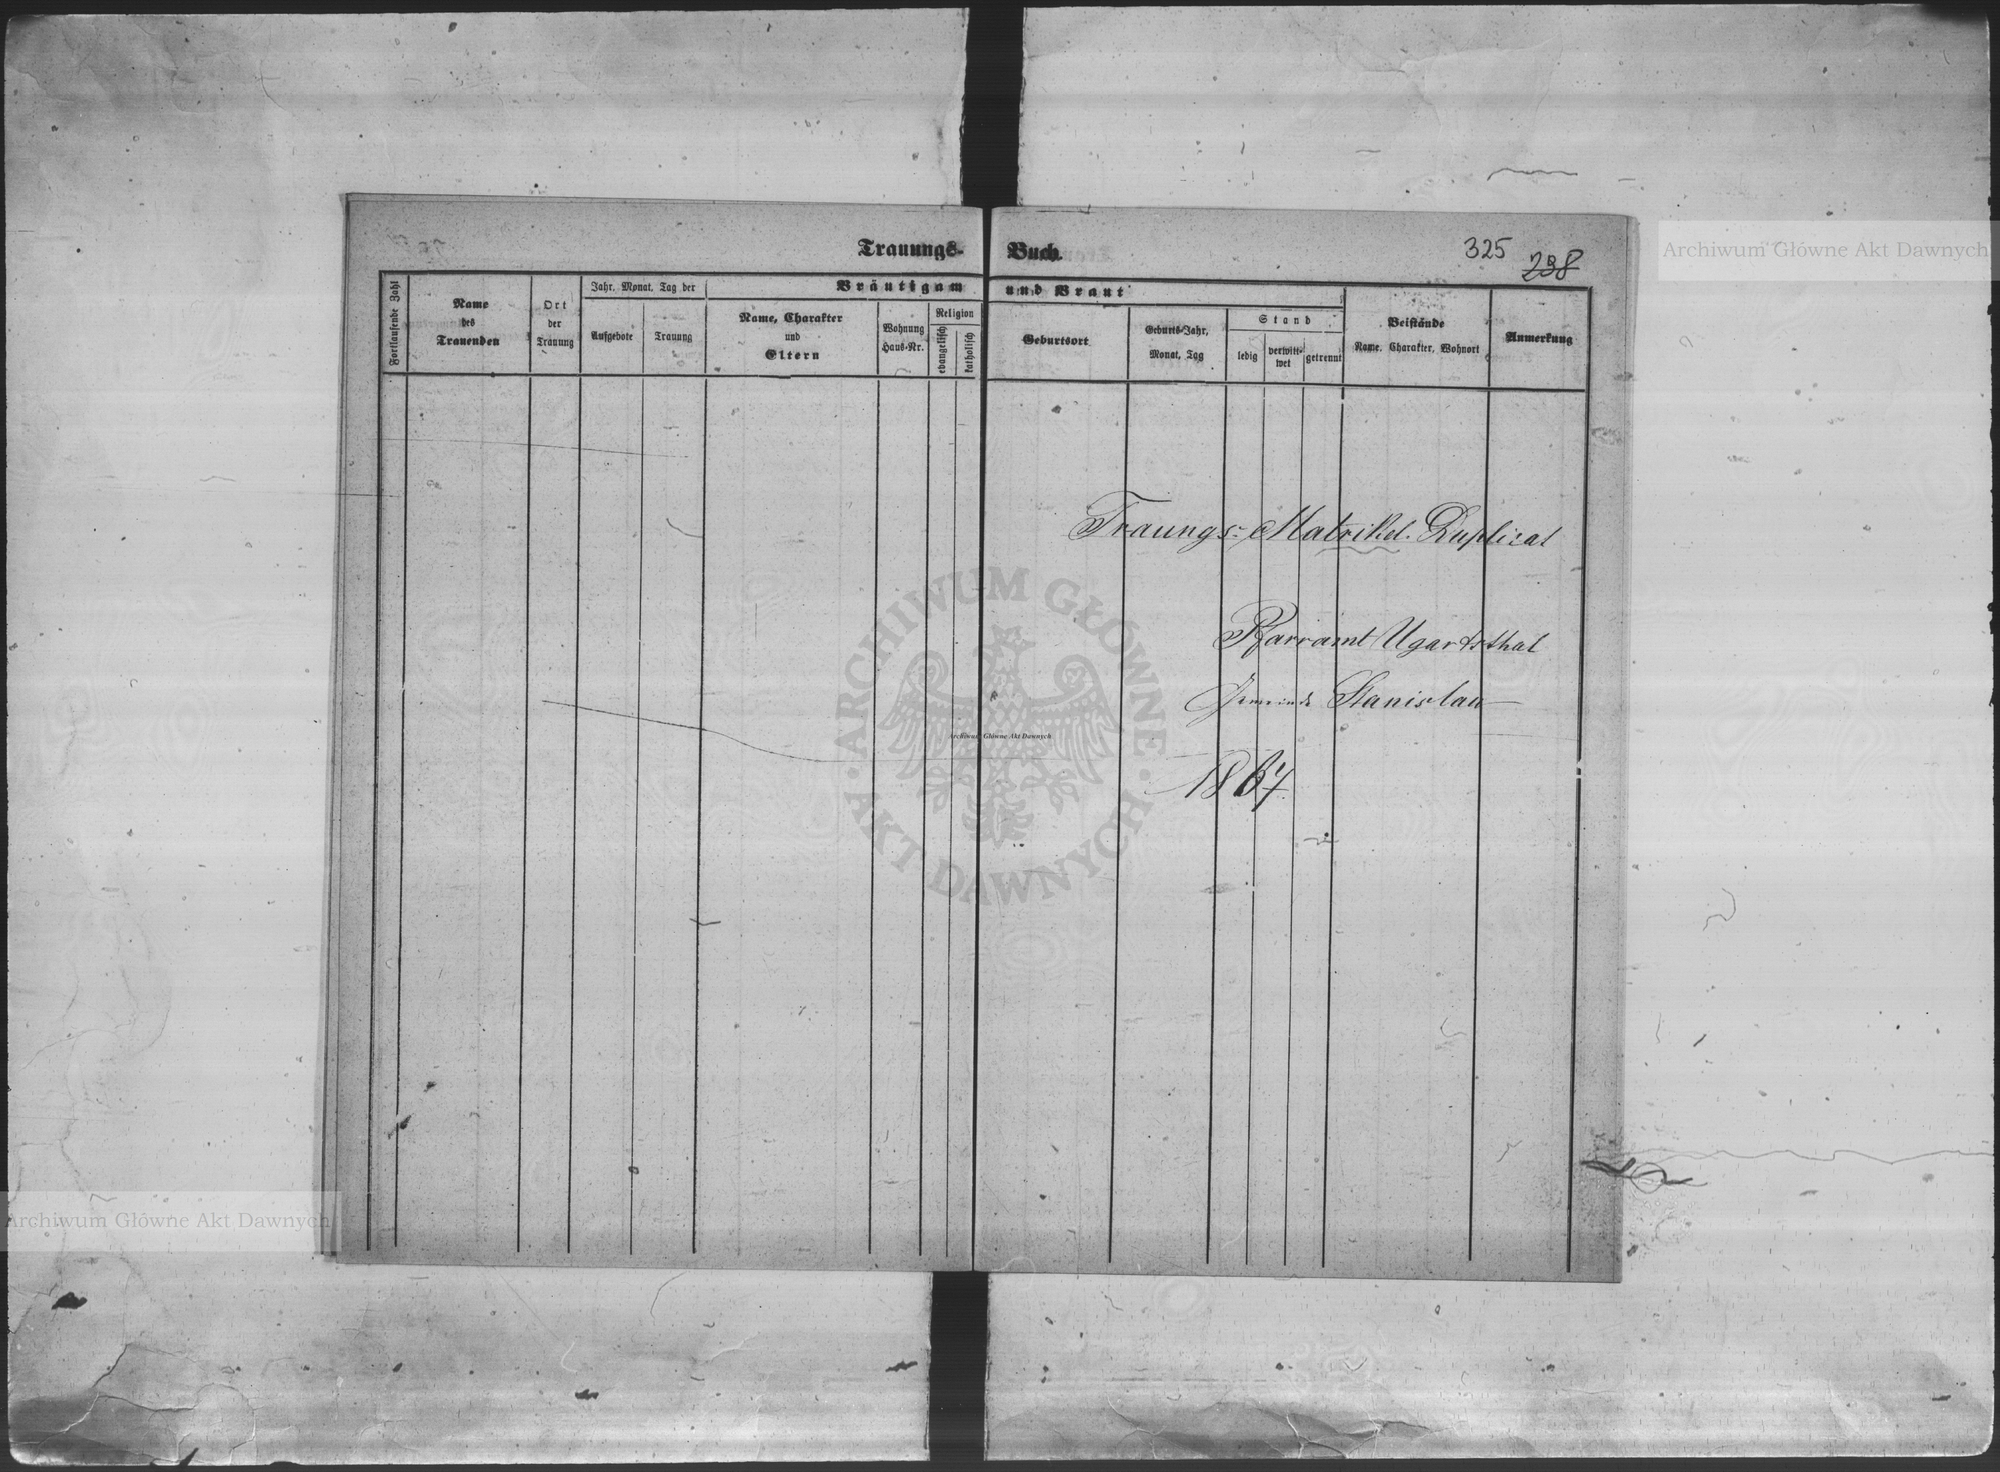 Trauungs-
Buch.
325
238
Fortlaufende Zahl
Name
des
Trauenden
Ort
der
Trauung
Jahr, Monat, Tag der
Aufgebote
Trauung
Bräutigam
Name, Charakter
und
Eltern
Wohnung
Haus-Nr.
Religion
evangelisch
katholisch
und Braut
Geburtsort
Geburts-Jahr,
Monat, Tag
Stand
ledig
verwitt-
wet
getrennt
Beistände
Name, Charakter, Wohnort
Anmerkung
Traungs-Matrikel-Duplicat
Pfarramt Ugartsthal
Gemeinde Stanislau
1867.
ARCHIWUM GŁÓWNE
AKT DAWNYCH
Archiwum Główne Akt Dawnych
Archiwum Główne Akt Dawnych
Archiwum Główne Akt Dawnych